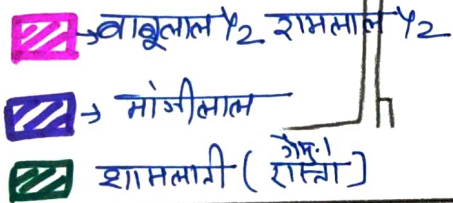 → बाबूलाल 1/2 रामलाल 1/2
→ मांजीलाल
→ शामलाती (गैमु. रास्ता)